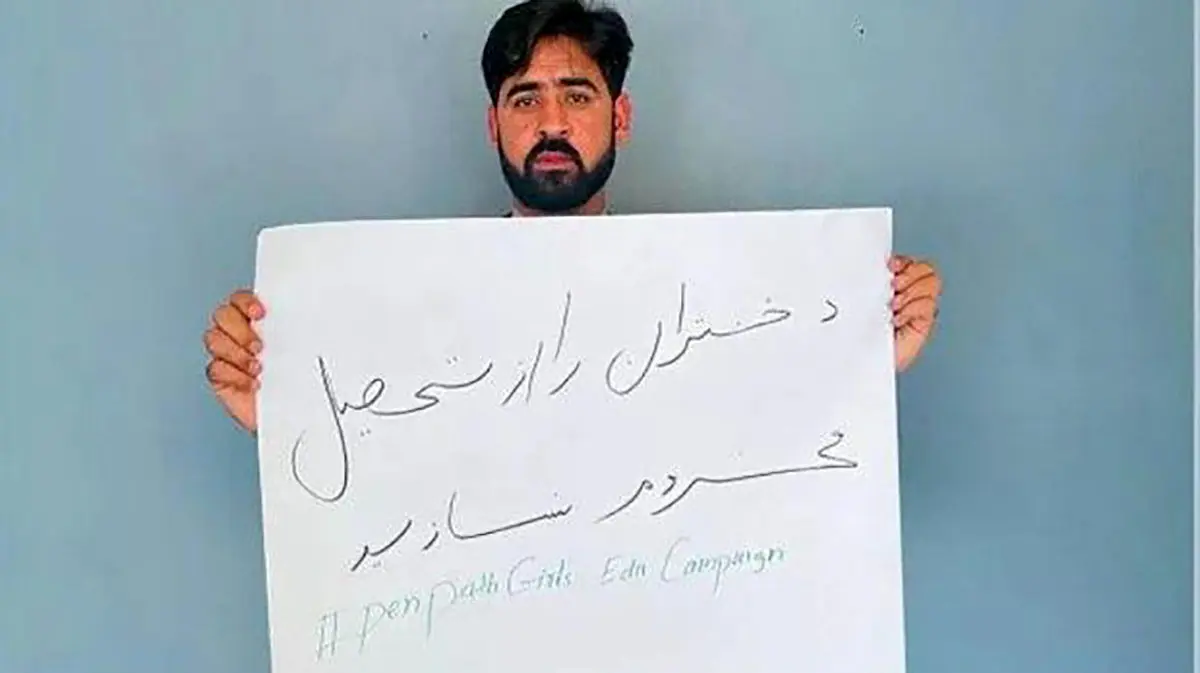 دختران را از تحصیل
محروم نسازید
# PenPath Girls Edu Campaign